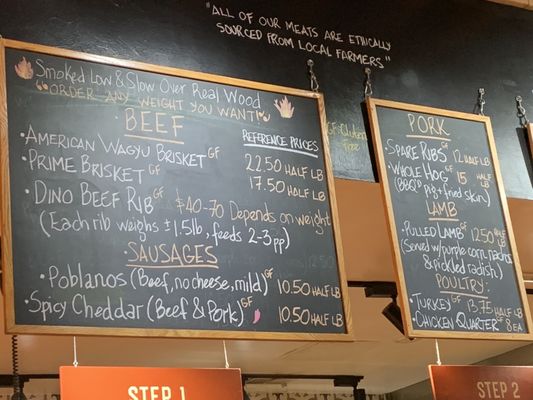 "ALL OF OUR MEATS ARE ETHICALLY
SOURCED FROM LOCAL FARMERS"
Smoked Low & Slow Over Real Wood
"ORDER ANY WEIGHT YOU WANT!"
BEEF
REFERENCE PRICES
• AMERICAN WAGYU BRISKET GF 22.50 HALF LB
• PRIME BRISKET GF 17.50 HALF LB
• DINO BEEF RIB GF $40-70 DEPENDS ON WEIGHT
(EACH RIB WEIGHS ±1.5lb, FEEDS 2-3pp)
SAUSAGES
• POBLANOS (BEEF, NO CHEESE, MILD) GF 10.50 HALF LB
• SPICY CHEDDAR (BEEF & PORK) GF 10.50 HALF LB
GF = Gluten
Free
PORK
• SPARE RIBS GF 12 HALF LB
• WHOLE HOG GF 15 HALF LB
(BBQ'D pig + fried skin)
LAMB
• PULLED LAMB GF 12.50 HALF LB
(Served w/purple corn, radns
& pickled radish)
POULTRY:
• TURKEY GF 13.75 HALF LB
• CHICKEN QUARTER GF 8 EA
STEP 1
STEP 2